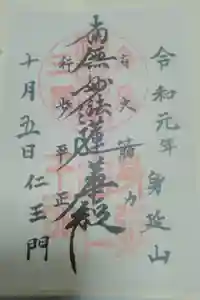 令和元年 身延山
有大筋力
南無妙法蓮華経
行歩平正
十月五日 仁王門